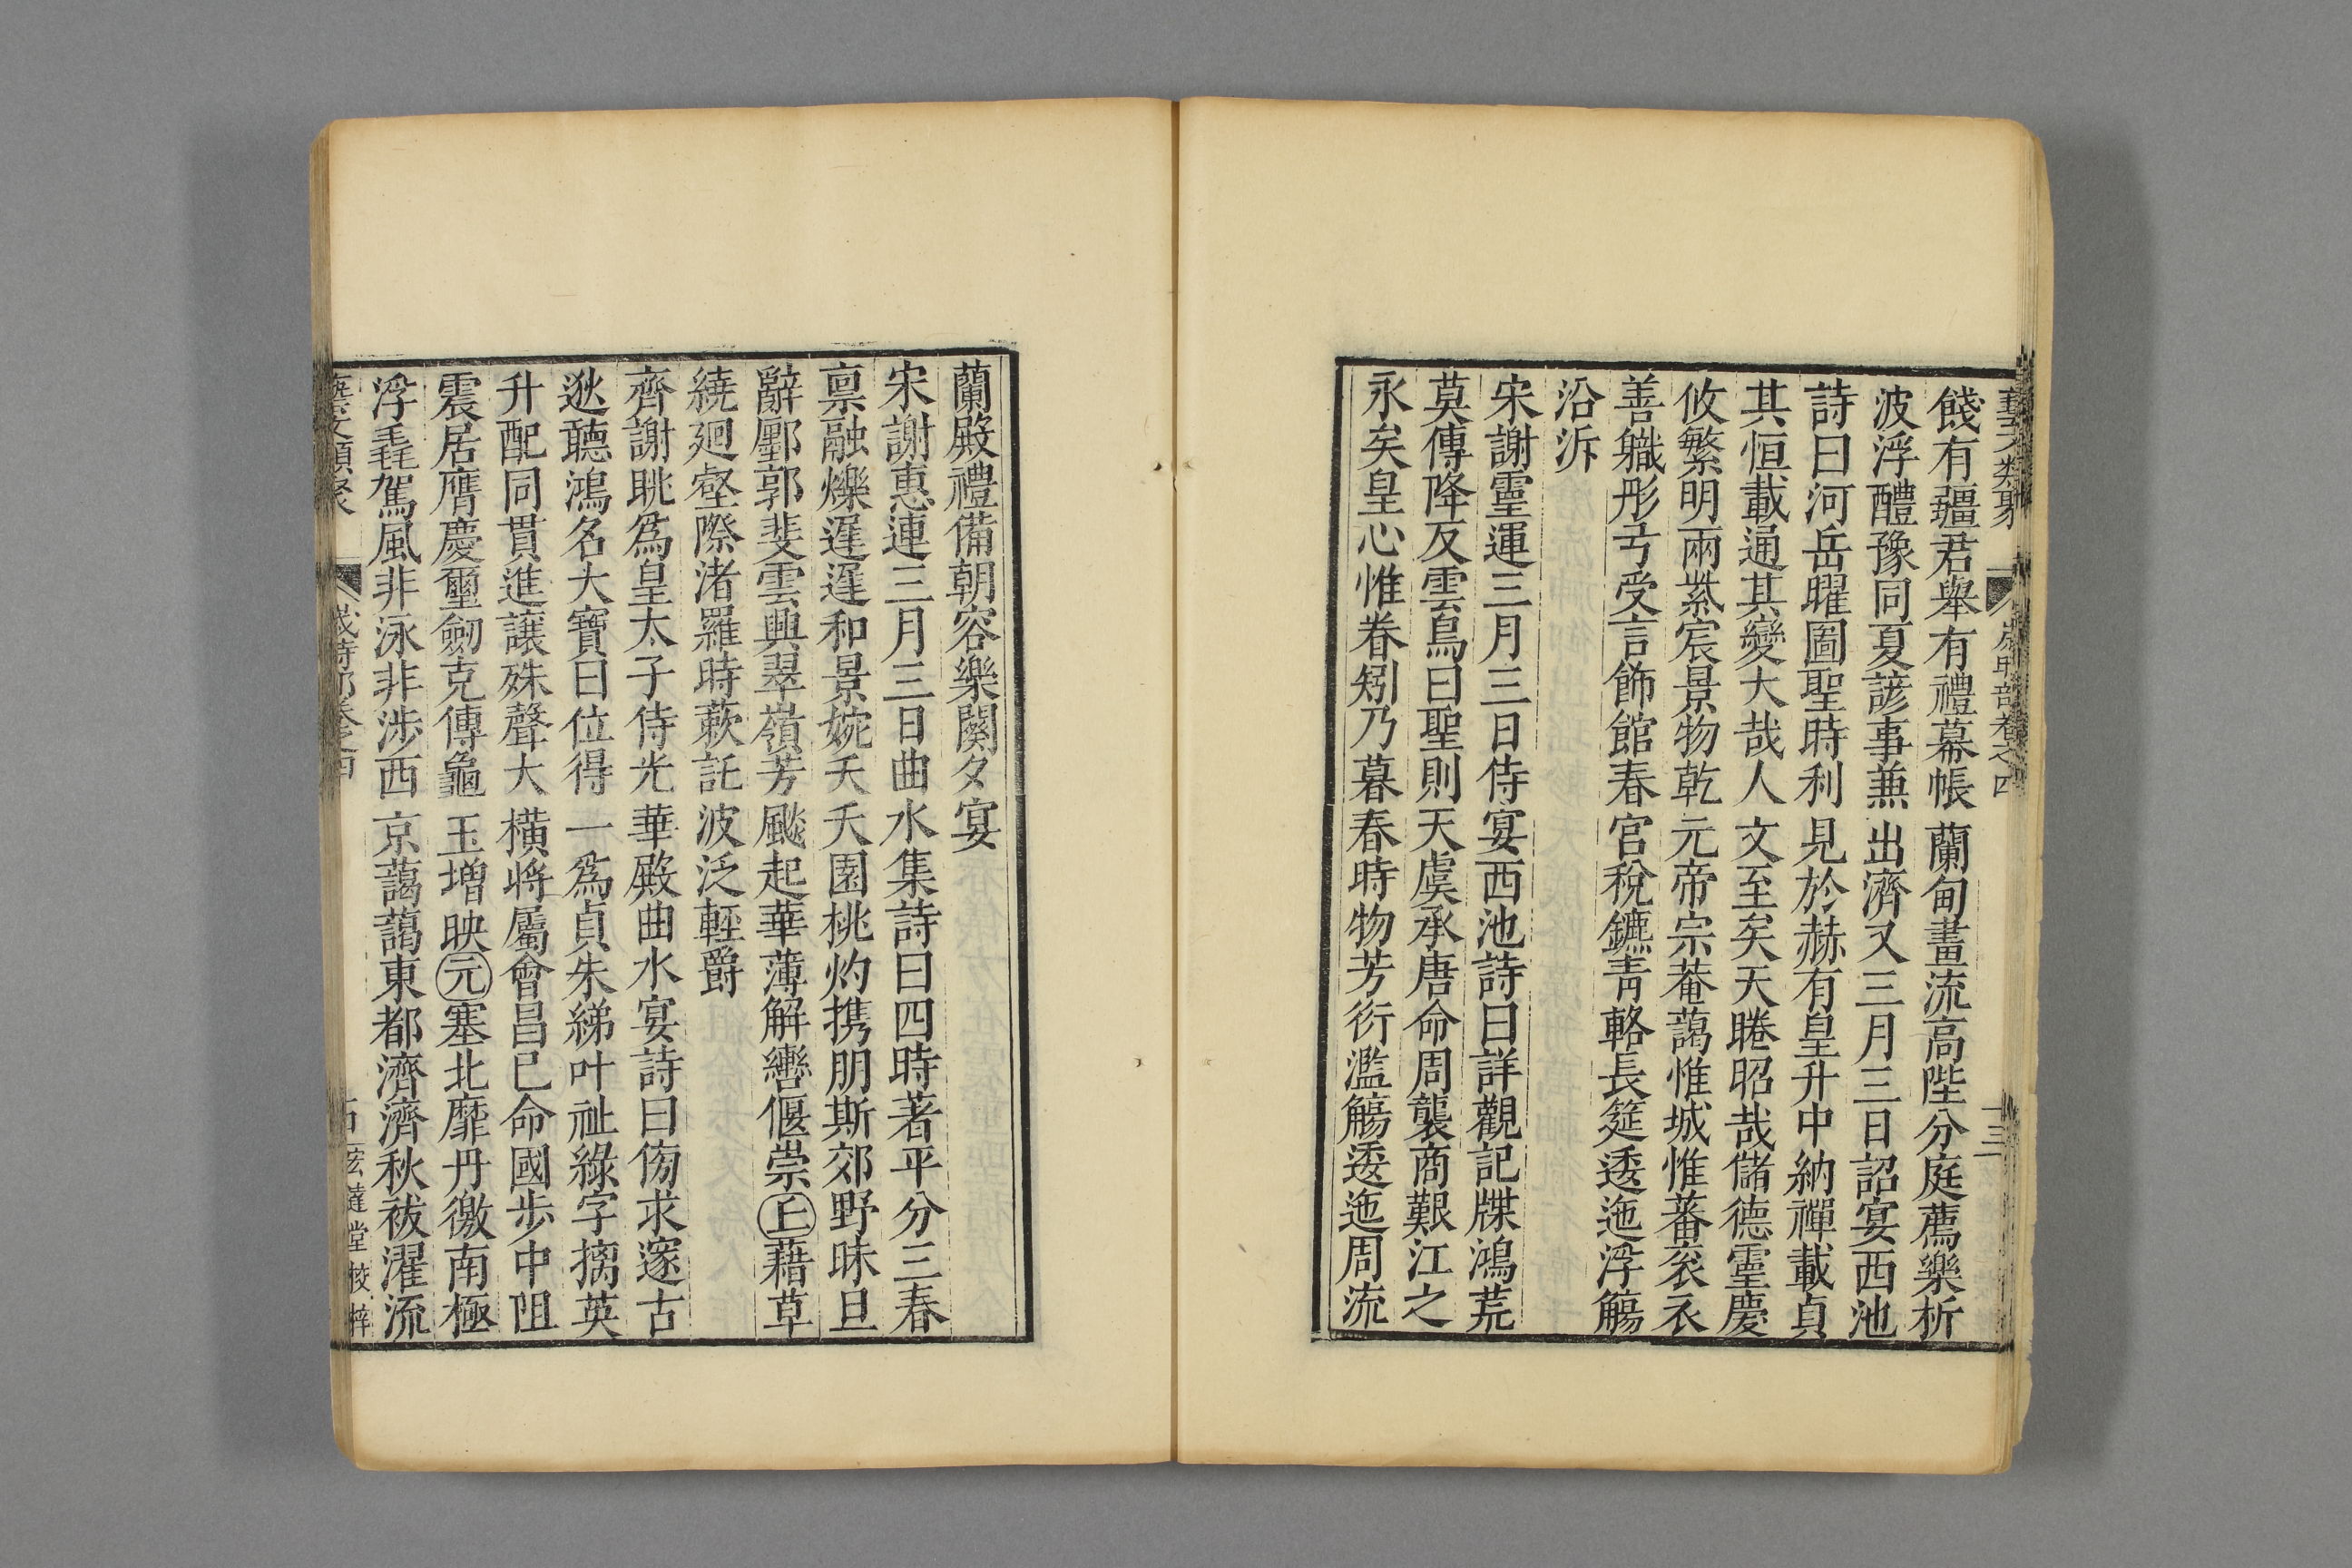 藝文類聚 歲時部卷之四 十三
餞有疆君舉有禮幕帳蘭甸畫流高陛分庭薦樂析
波浮醴豫同夏諺事兼出濟又三月三日詔宴西池
詩曰河岳曜圖聖時利見於赫有皇升中納禪載貞
其恒載通其變大哉人文至矣天睠昭哉儲德靈慶
攸繁明兩紫宸景物乾元帝宗菴藹惟城惟蕃衮衣
善職彤弓受言飾館春宮稅鑣青輅長筵逶迤浮觴
沿泝
宋謝靈運三月三日侍宴西池詩曰詳觀記牒鴻荒
莫傳降及雲鳥曰聖則天虞承唐命周襲商艱江之
永矣皇心惟眷矧乃暮春時物芳衍濫觴逶迤周流
蘭殿禮備朝容樂闋夕宴
宋謝惠連三月三日曲水集詩曰四時著平分三春
禀融爍遲遲和景婉夭夭園桃灼攜朋斯郊野昧旦
辭鄽郭斐雲興翠嶺芳飈起華薄解轡偃崇㊤藉草
繞廻壑際渚羅時蔌託波泛輕爵
齊謝眺爲皇太子侍光華殿曲水宴詩曰傍求邃古
逖聽鴻名大寶曰位得一爲貞朱綈叶祉綠字摛英
升配同貫進讓殊聲大橫將屬會昌已命國步中阻
震居膺慶璽劒克傳龜玉增映㊎塞北靡丹徼南極
浮毳駕風非泳非涉西京藹藹東都濟濟秋祓濯流
藝文類聚 歲時部卷之四 宏達堂校梓